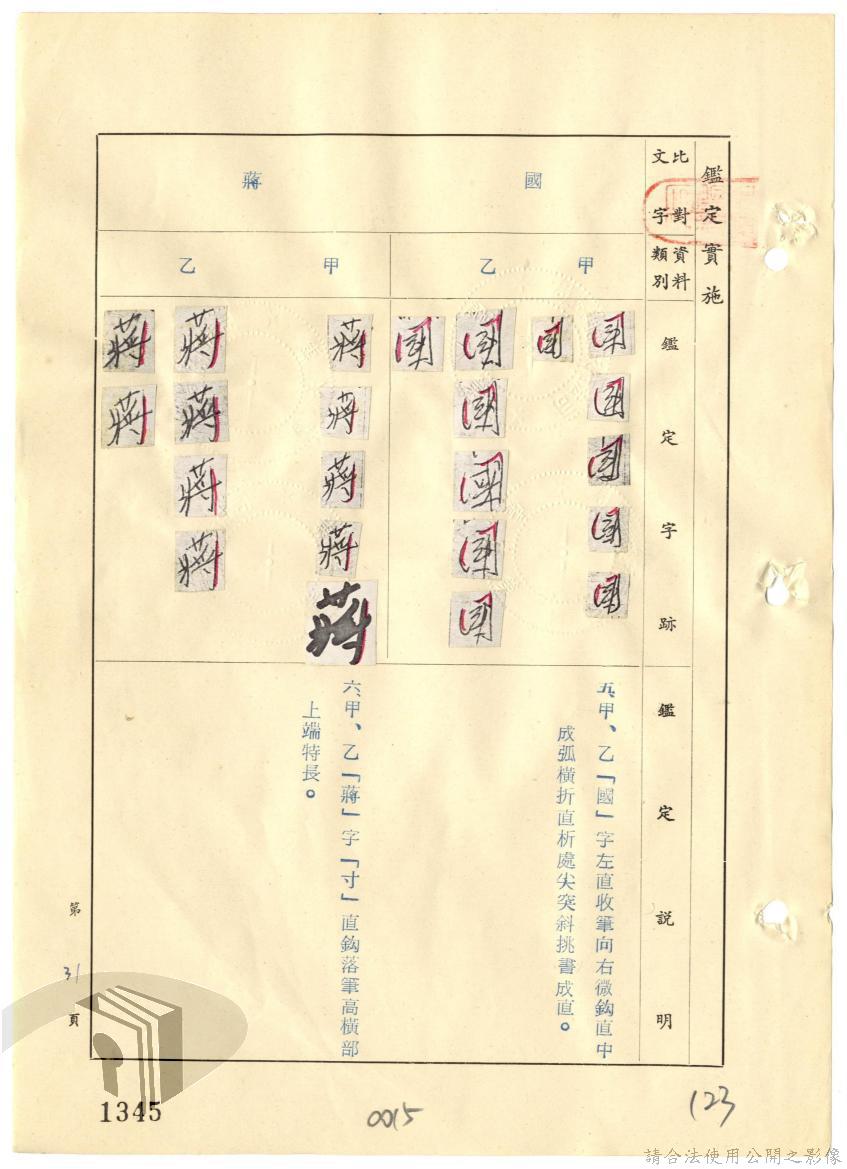 鑑定實施
比對文字
資料類別
鑑定字跡
鑑定説明
國
甲
乙
國 國 國 國 國
國
國 國 國 國 國
國
五、甲、乙「國」字左直收筆向右微鈎直中
成弧橫折直析處尖突斜挑書成直。
蔣
甲
乙
蔣 蔣 蔣 蔣 蔣
蔣 蔣 蔣 蔣
蔣 蔣
六、甲、乙「蔣」字「寸」直鈎落筆高橫部
上端特長。
第31頁
1345
0015
123
請合法使用公開之影像